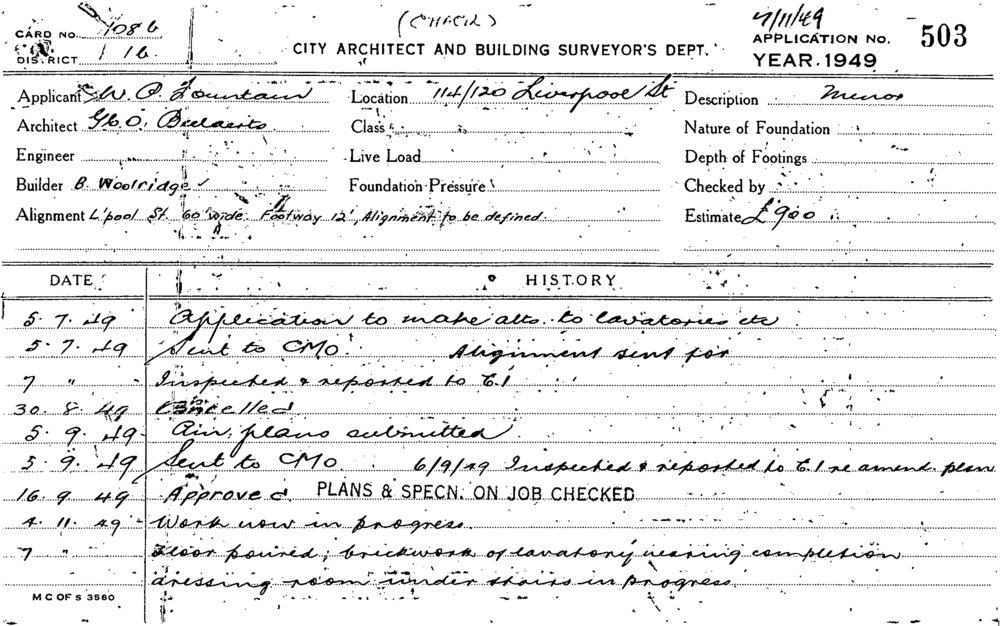 7/11/49
CARD No. 1086
CITY ARCHITECT AND BUILDING SURVEYOR'S DEPT.
APPLICATION No. 503
DISTRICT 116
YEAR 1949
Applicant W. O. Fountain
Location 114/120 Liverpool St
Description Minor
Architect
Class
Nature of Foundation
Engineer
Live Load
Depth of Footings
Builder B. Woolridge
Foundation Pressure
Checked by
Alignment L'pool St. 60' wide. Footway 12', Alignment to be defined.
Estimate £900
DATE
HISTORY
5. 7. 49 Application to make alts. to lavatories etc
5. 7. 49 Sent to CMO. Alignment sent for
7 " " Inspected & reported to C.I
30. 8. 49 Cancelled
5. 9. 49 plans submitted
5. 9. 49 Sent to CMO. 6/9/49 Inspected & reported to C.I re amend. plan
16. 9. 49 Approved. PLANS & SPECN. ON JOB CHECKED
4. 11. 49 Work now in progress.
7 " Floor poured; brickwork of lavatory nearing completion
dressing room under stairs in progress.
M C OF S 3580